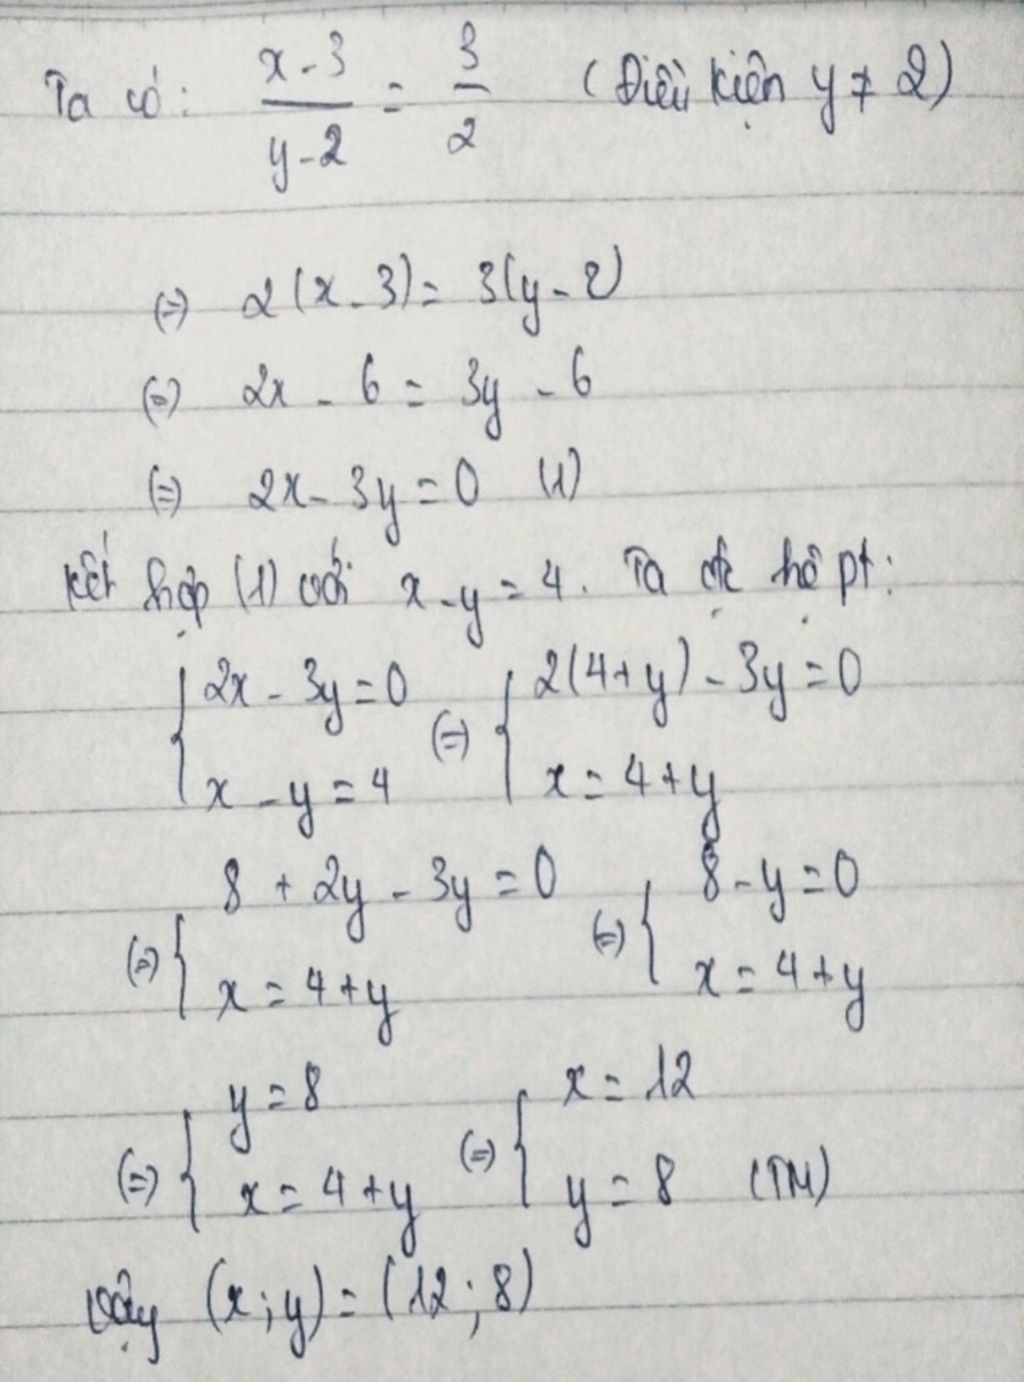 Ta có: x-3/y-2 = 3/2 (Điều kiện y ≠ 2)
(=) 2(x-3) = 3(y-2)
(=) 2x - 6 = 3y - 6
(=) 2x - 3y = 0 (1)
Kết hợp (1) với x-y = 4. Ta đc hệ pt:
{ 2x - 3y = 0 (=) { 2(4+y) - 3y = 0
x - y = 4 x = 4+y
(=) { 8 + 2y - 3y = 0 (=) { 8 - y = 0
x = 4+y x = 4+y
(=) { y = 8 (=) { x = 12
x = 4+y y = 8 (TM)
Vậy (x;y) = (12;8)